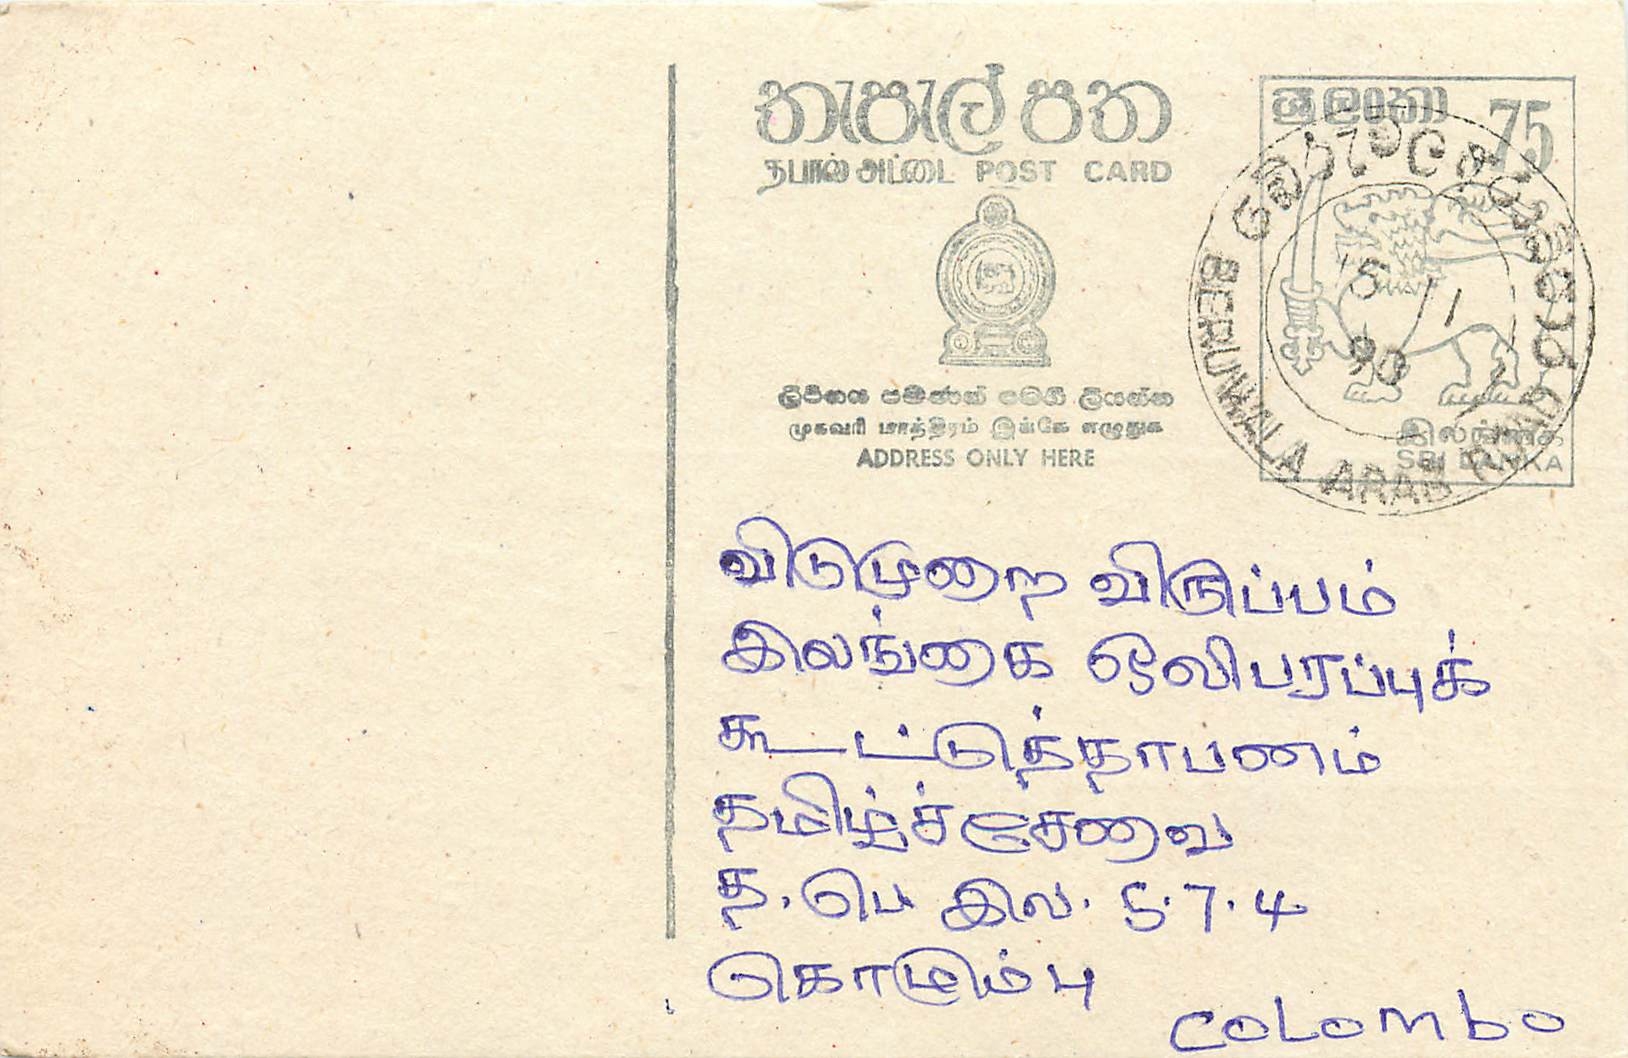 තැපැල් පත
தபால் அட்டை POST CARD
ශ්‍රී ලංකා 75
BERUWALA ARAB ROAD
5 1
90
லිපිනය පමණක් මෙහි ලියන්න
முகவரி மாத்திரம் இங்கே எழுதுக
ADDRESS ONLY HERE
இலங்கை
SRI LANKA
விடுமுறை விருப்பம்
இலங்கை ஒலிபரப்புக்
கூட்டுத்தாபனம்
தமிழ்ச்சேவை
த. பெ இல. 5.7.4
கொழும்பு
COLOMBO